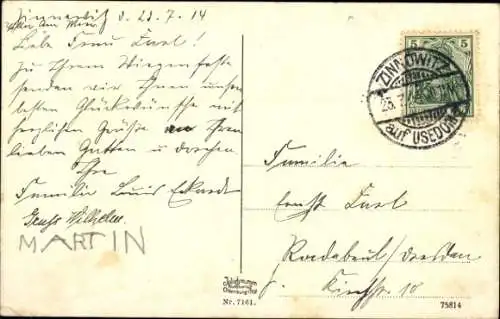 Zinnowitz d. 23.7.14
Liebe Frau Insel!
Zu Ihrem Wiegenfeste
senden wir Ihnen unsere
besten Glückwünsche mit
herzlichen Grüße an Ihren
lieben Gatten und
Ihre
Familie Louis Eckardt
Gruß Wilhelm.
MARTIN
5 5
ZINNOWITZ
auf USEDOM
Familie
Ernst Insel
Radebeul/Dresden
Nr. 7161.
75814